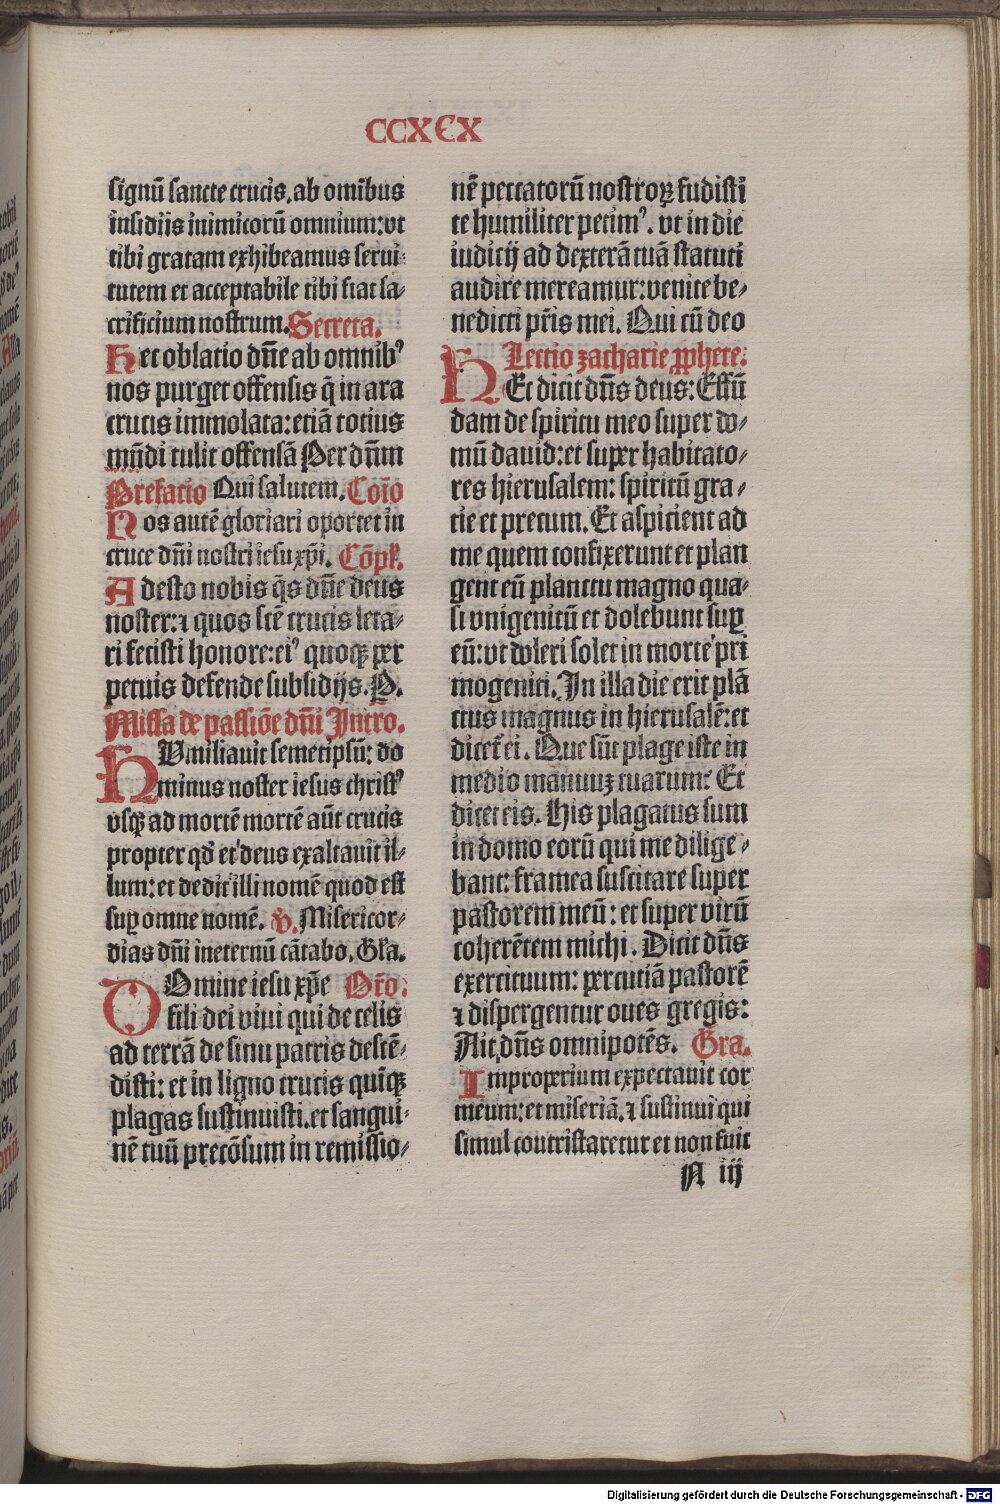 CCXCX
signū sancte crucis.ab omibus
insidiis inimicorū omnium:vt
tibi gratam exhibeamus serui⸗
tutem et acceptabile tibi fiat sa⸗
crificium nostrum.Secreta.
Hec oblatio dn̄e ab omnibꝰ
nos purget offensis q̄ in ara
crucis immolata:etiā totius
mūdi tulit offensā Per dn̄m
Prefatio Qui salutem.Coīo
Nos autē gloriari oportet in
cruce dn̄i nostri iesu xp̄i. Cōpl̄.
Adesto nobis q̄s dn̄e deus
noster:⁊ quos scē crucis leta⸗
ri fecisti honore:eiꝰ quoqꝫ per
petuis defende subsidijs.P.
Missa de passiōe dn̄i Intro.
HUmiliauit semetipsū: do
minus noster iesus christꝰ
vsqꝫ ad mortē mortē aūt crucis
propter qd̄ et deus exaltauit il⸗
lum:et dedit illi nomē quod est
suꝑ omne nomē. v̄.Misericor⸗
dias dn̄i ineternū cātabo.Gl̄a.
DOmine iesu xp̄e Oro.
fili dei viui qui de celis
ad terrā de sinu patris descē⸗
disti: et in ligno crucis quīqꝫ
plagas sustinuisti.et sangui⸗
nē tuū precōsum in remissio⸗
nē peccatorū nostroꝝ fudisti
te humiliter petimꝰ. vt in die
iudicij ad dexterā tuā statuti
audire mereamur:venite be⸗
nedicti pr̄is mei. Qui cū deo
Lectio zacharie ꝓphete.
HEc dicit dn̄s deus: Effū
dam de spiritu meo super do⸗
mū dauid:et super habitato⸗
res hierusalem: spiritū gra⸗
tie et precum. Et aspicient ad
me quem confixerunt et plan
gent eū planctu magno qua⸗
si vnigenitū et dolebunt suꝑ
eū:vt doleri solet in morte pri
mogeniti. In illa die erit plā
ctus magnus in hierusalē:et
dicet̄ ei. Que sūt plage iste in
medio manuuꝫ tuarum: Et
dicet eis. His plagatus sum
in domo eorū qui me dilige⸗
bant: framea suscitare super
pastorem meū: et super virū
coherētem michi. Dicit dn̄s
exercituum: percutiā pastorē
⁊ dispergentur oues gregis:
Ait dn̄s omnipotēs. Gra.
Improperium expectauit cor
meum:et miseriā.⁊ sustinui qui
simul coutristaretur et non fuit
N iij
Digitalisierung gefördert durch die Deutsche Forschungsgemeinschaft - DFG